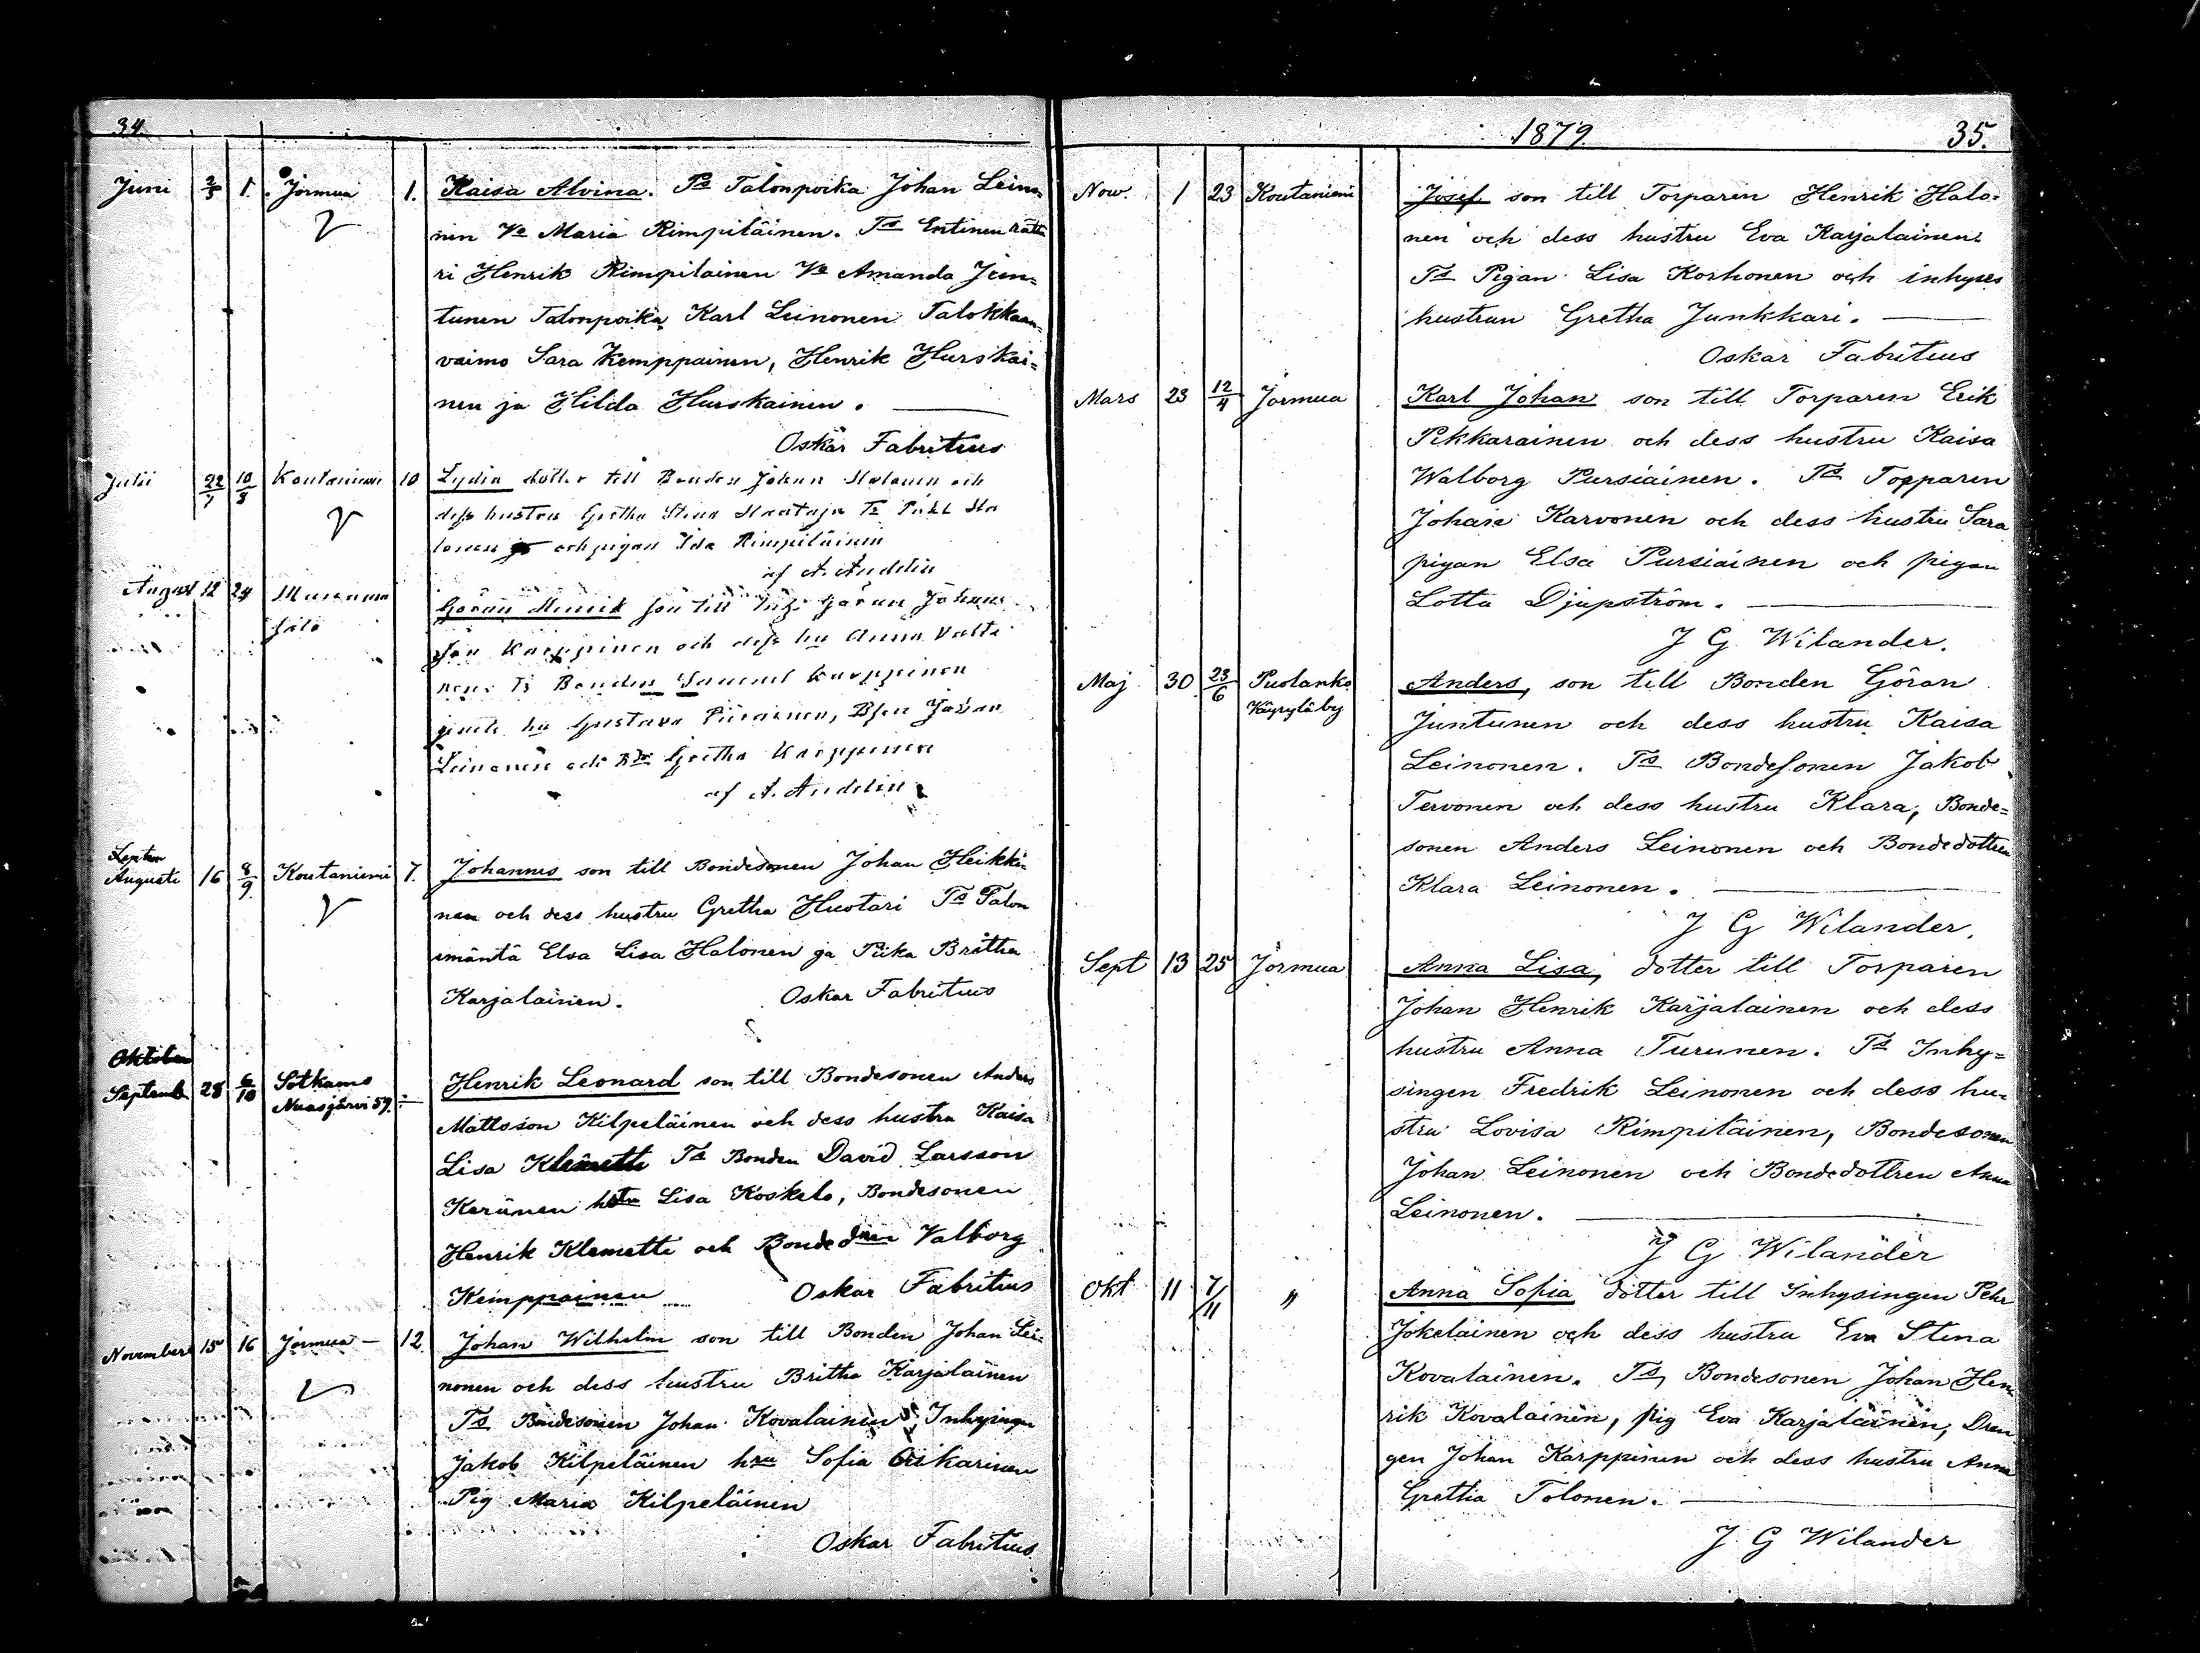 34.
Juni 2/5 1. Jormua 1. Kaisa Alvina. Ps Talonpoika Johan Leino-
nen Vo Maria Rimpiläinen. Ts Entinen rätta
ri Henrik Rimpiläinen Vo Amanda Jun-
tunen Talonpoika Karl Leinonen Talokkaan-
vaimo Sara Kemppainen, Henrik Hurskai-
nen ja Hilda Hurskainen.
Oskar Fabritius
Julii 22/7 10/8 Koutaniemi 10 Lydia dotter till Bonden Johan Halonen och
dess hustru Gretha Stina Haataja Ts Ha
lonen och pigan Ida Rimpiläinen
af A. Andelin
August 12 24 Göran Henrik son till Göran Johans
son Karppinen och dess hu Anna Valta
nen. Ts Bonden Samuel Karppinen
hu Gustava Piirainen, Johan
Leinonen och Gretha Karppinen
af A. Andelin
Septem
Augusti 16 8/9 Koutaniemi 7. Johannes son till Bondesonen Johan Heikki-
nen och dess hustru Gretha Huotari Ts Talon
emäntä Elsa Lisa Halonen ja Piika Britha
Karjalainen. Oskar Fabritius
Oktober
Septemb 28 6/10 Sotkamo
Nuasjärvi 57. Henrik Leonard son till Bondesonen Anders
Mattsson Kilpeläinen och dess hustru Kaisa
Lisa Klemetti Ts Bonden David Larsson
Keränen hstu Lisa Koskelo, Bondesonen
Henrik Klemetti och Bondedrn Valborg
Kemppainen Oskar Fabritius
November 15 16 Jormua 12. Johan Wilhelm son till Bonden Johan Lei-
nonen och dess hustru Britha Karjalainen
Ts Bondesonen Johan Kovalainen, Inhysingen
Jakob Kilpeläinen hru Sofia Oikarinen
Pig Maria Kilpeläinen
Oskar Fabritius
1879. 35.
Nov. 1 23 Koutaniemi Josef son till Torparen Henrik Halo-
nen och dess hustru Eva Karjalainen.
Ts Pigan Lisa Korhonen och inhyses
hustrun Gretha Junkkari.
Oskar Fabritius
Mars 23 12/4 Jormua Karl Johan son till Torparen Erik
Pikkarainen och dess hustru Kaisa
Walborg Pursiainen. Ts Torparen
Johan Karvonen och dess hustru Sara
pigan Elsa Pursiainen och pigan
Lotta Djupström.
J G Wilander.
Maj 30 23/6 Puolanko
Käyryläby Anders, son till Bonden Göran
Juntunen och dess hustru Kaisa
Leinonen. Ts Bondesonen Jakob
Tervonen och dess hustru Klara, Bonde-
sonen Anders Leinonen och Bondedottren
Klara Leinonen.
J G Wilander.
Sept 13 25 Jormua Anna Lisa, dotter till Torparen
Johan Henrik Karjalainen och dess
hustru Anna Turunen. Ts Inhy-
singen Fredrik Leinonen och dess hu-
stru Lovisa Rimpiläinen, Bondesonen
Johan Leinonen och Bondedottren Anna
Leinonen.
J G Wilander
Okt 11 7/11 " Anna Sofia dotter till Inhysingen Pehr
Jokelainen och dess hustru Eva Stina
Kovalainen. Ts, Bondesonen Johan Hen
rik Kovalainen, pig Eva Karjalainen, Dren
gen Johan Karppinen och dess hustru Anna
Gretha Tolonen.
J G Wilander